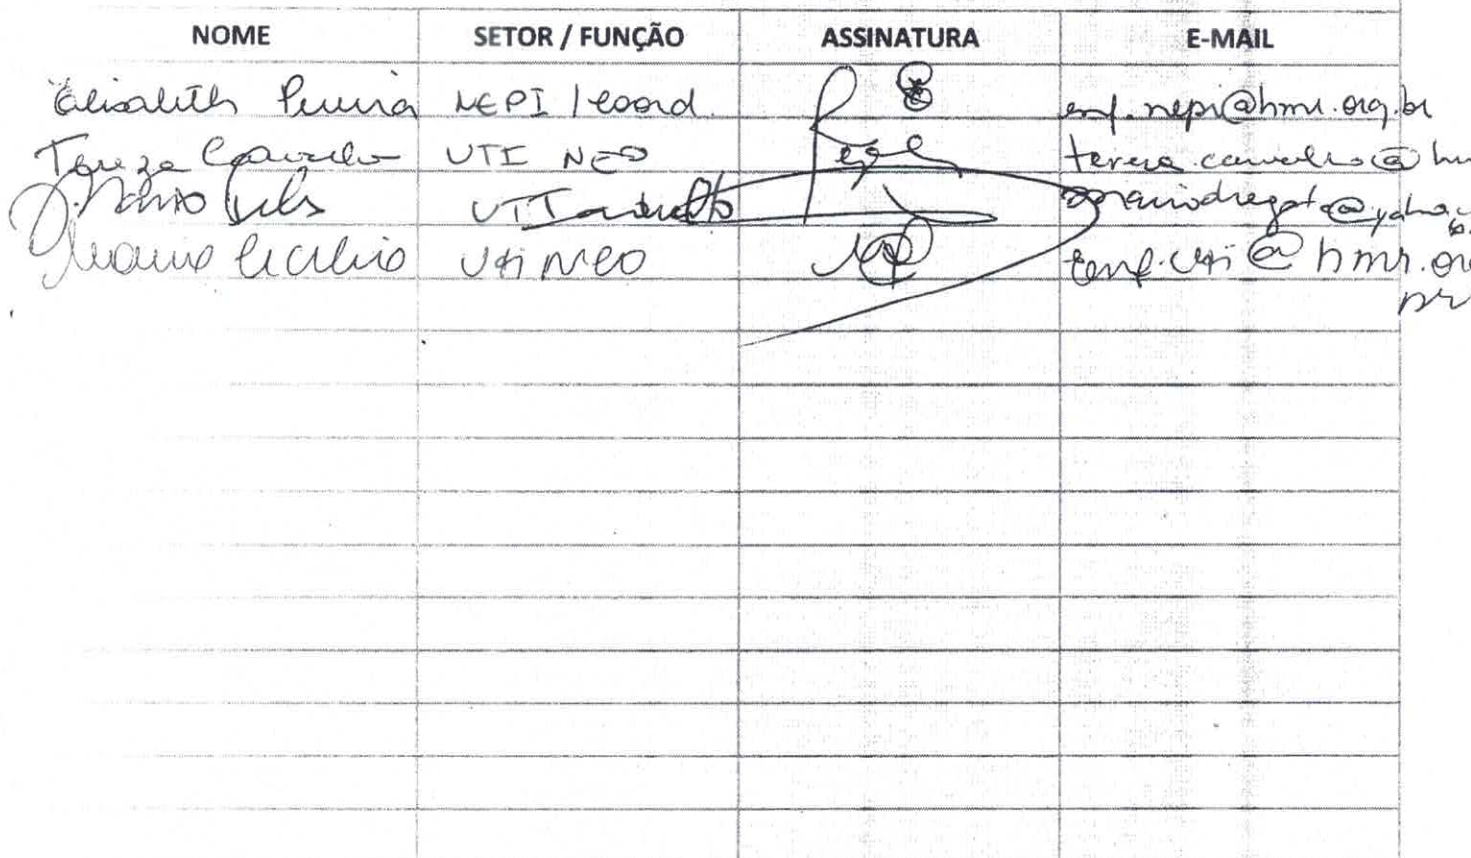 NOME SETOR / FUNÇÃO ASSINATURA E-MAIL
Elisabeth Pereira NEPI / coord. enf.nepi@hmr.org.br
Tereza Carvalho UTI NEO tereza.carvalho@hm
Mario UTI adulto
Maria Cecilia Uti Neo enf.uti@hmr.org